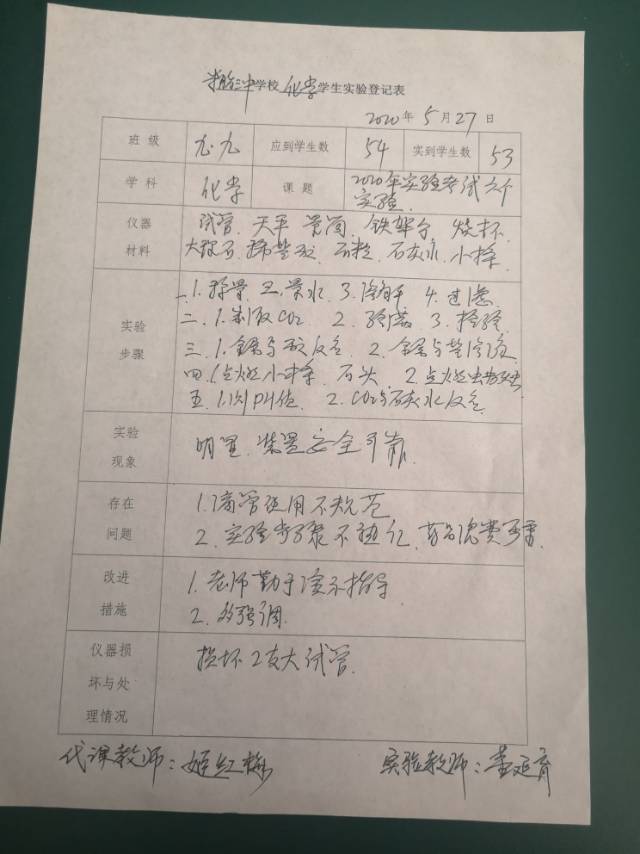 三中学校 化学 学生实验登记表
2020 年 5 月 27 日
班级 九.九 应到学生数 54 实到学生数 53
学科 化学 课题 2020年实验考试六个
实验.
仪器 试管. 天平 量筒. 铁架台. 烧杯.
材料 大理石. 稀盐酸. 石蕊. 石灰水. 小木条
一.1.称量 2.量水 3.溶解 4.过滤
实验 二.1.制取CO2. 2.验满 3.检验
步骤 三.1.金属与酸反应 2.金属与盐溶液
四.1.点燃小木条. 石头. 2.点燃
五.1.测PH值. 2.CO2与石灰水反应
实验 明显. 装置安全可靠.
现象
存在 1.滴管使用不规范
问题 2.实验步骤不熟化. 药品浪费严重.
改进 1.老师勤于演示指导
措施 2.多强调.
仪器损 损坏2支大试管.
坏与处
理情况
代课教师:姬红梅 实验教师:董延育